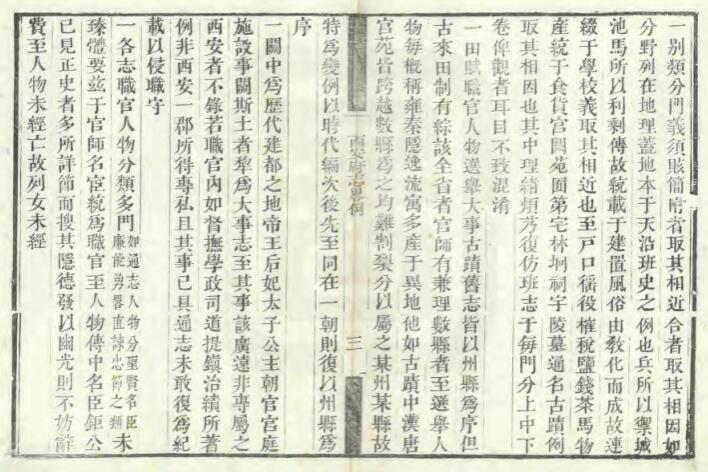 一別類分門義須賅簡府者取其相近合者取其相因如
分野列在地理蓋地本于天沿班史之例也兵所以禦城
池馬所以利剩傳故統載于建置風俗由教化而成故連
綴于學校義取其相近也至戸口徭役榷稅鹽錢茶馬物
產統于食貨宮闕苑囿第宅林坰祠宇陵墓通名古蹟例
取其相因也其中理緒煩夥復仿班志于每門分上中下
卷俾觀者耳目不致混淆
一田賦職官人物選舉大事古蹟舊志皆以州縣爲序但
古來田制有綜該全省者官師有兼理數縣者至選舉人
物每概稱雍秦隱逸流寓多產于異地他如古蹟中漢唐
宮苑皆跨越數縣爲之均難割裂分以屬之某州某縣故
西安府志畧例
三
特爲變例以時代編次後先至同在一朝則復以州縣爲
序
一關中爲歷代建都之地帝王后妃太子公主朝官宮庭
施設事關斯土者犁爲大事志至其事該廣遠非專屬之
西安者不錄若職官內如督撫學政司道提鎮治績所著
例非西安一郡所得專私且其事已具通志未敢復爲紀
載以侵職守
一各志職官人物分類多門如通志人物分聖賢名臣廉能勇畧直諫忠節之類未
臻體要兹于官師名臣統爲職官至人物傳中名臣鉅公
已見正史者多所詳節而搜其隱德發以幽光則不妨辭
費至人物未經亡故列女未經